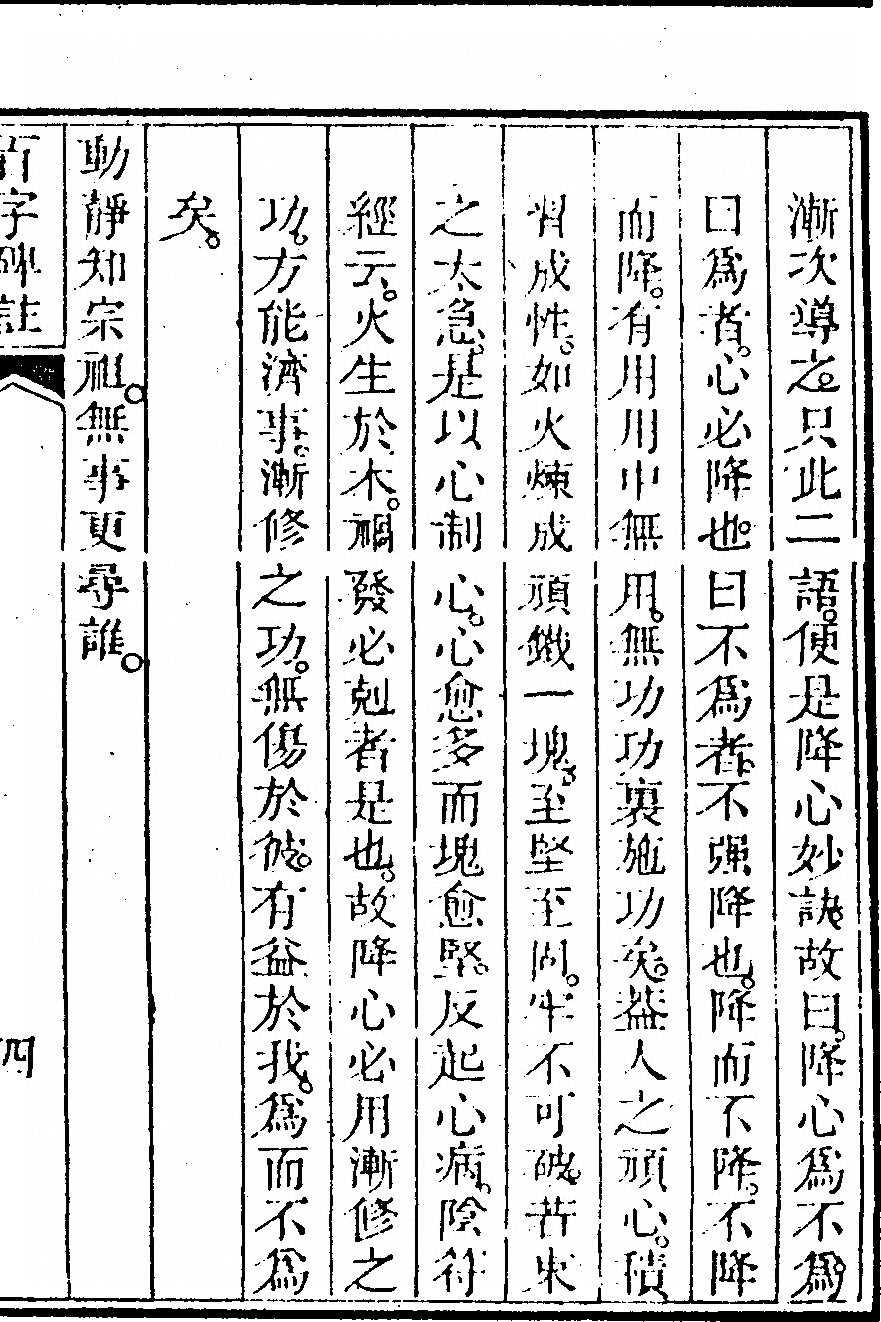 漸次導之。只此二語。便是降心妙訣。故曰。降心爲不爲。
曰爲者。心必降也。曰不爲者。不强降也。降而不降。不降
而降。有用用中無用。無功功裏施功矣。蓋人之頑心。積
習成性。如火煉成頑鐵一塊。至堅至固。牢不可破。若束
之太急。是以心制心。心愈多而塊愈堅。反起心病。陰符
經云。火生於木。禍發必剋者是也。故降心必用漸修之
功。方能濟事。漸修之功。無傷於彼。有益於我。爲而不爲
矣。
動靜知宗祖。無事更尋誰。
百字碑註
四